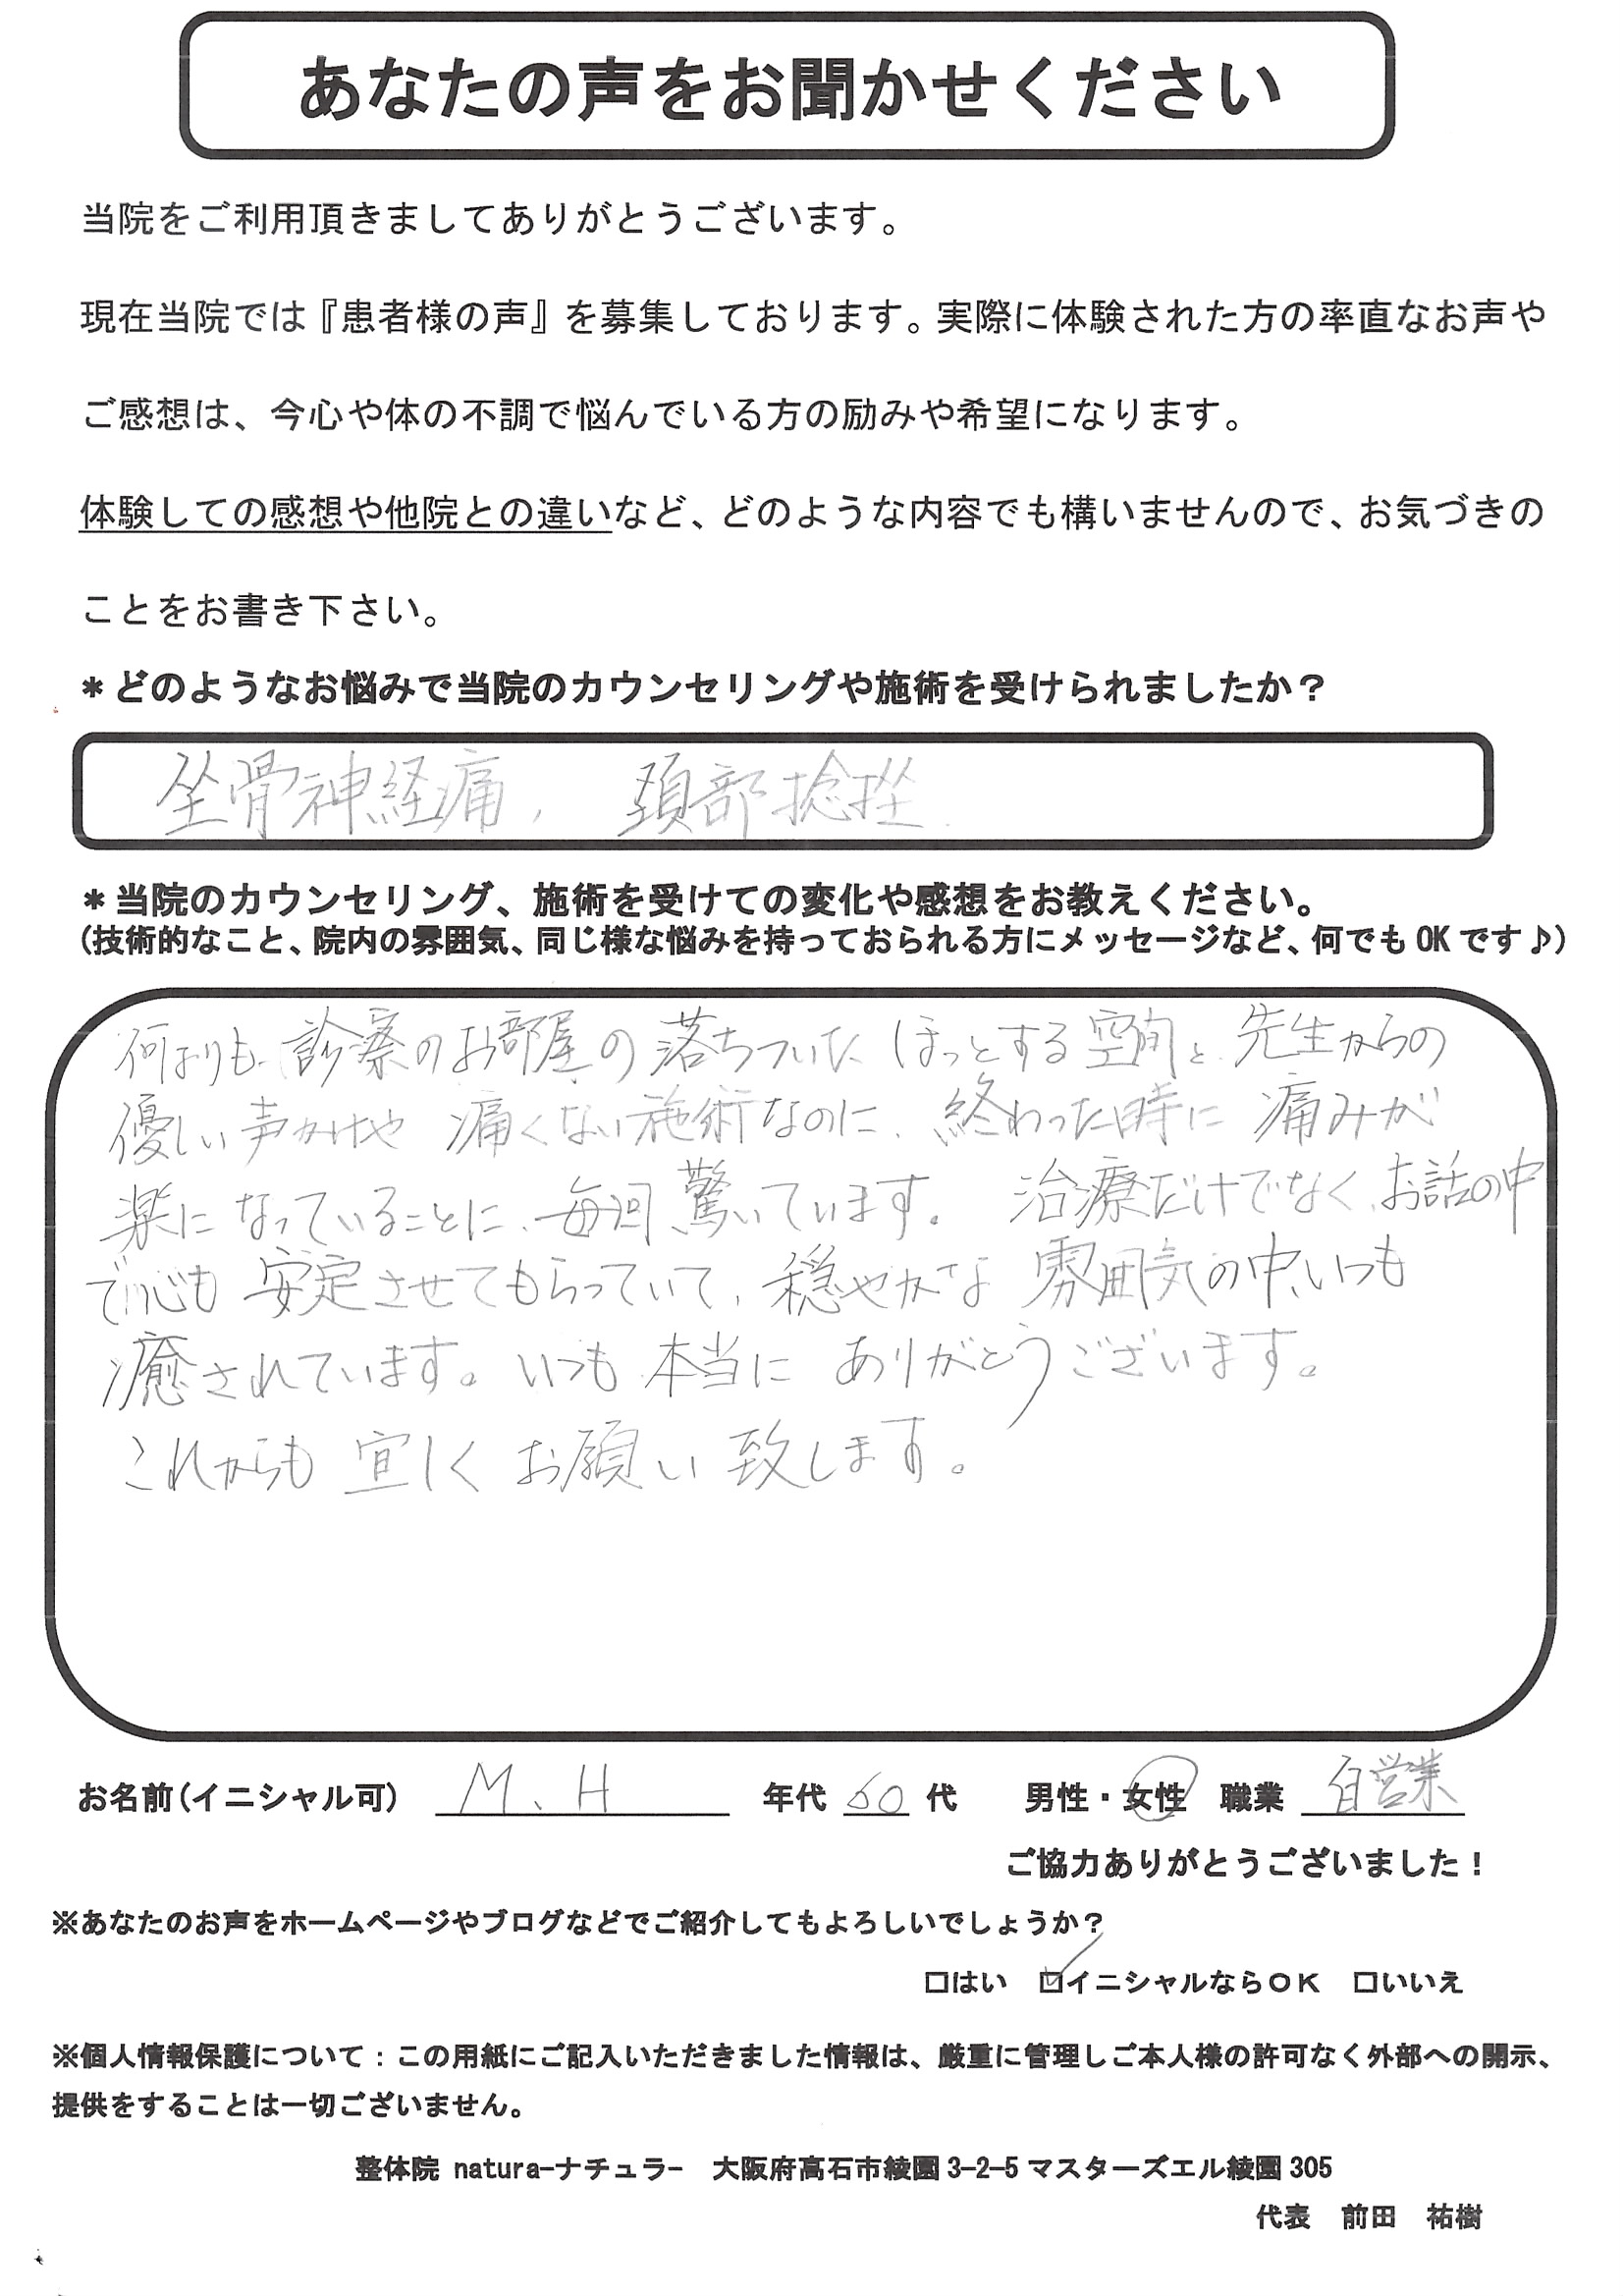 あなたの声をお聞かせください
当院をご利用頂きましてありがとうございます。
現在当院では『患者様の声』を募集しております。実際に体験された方の率直なお声や
ご感想は、今心や体の不調で悩んでいる方の励みや希望になります。
体験しての感想や他院との違いなど、どのような内容でも構いませんので、お気づきの
ことをお書き下さい。
＊どのようなお悩みで当院のカウンセリングや施術を受けられましたか？
坐骨神経痛、頚部捻挫.
＊当院のカウンセリング、施術を受けての変化や感想をお教えください。
（技術的なこと、院内の雰囲気、同じ様な悩みを持っておられる方にメッセージなど、何でもOKです♪）
何よりも、診察のお部屋の落ちついた ほっとする空間と、先生からの
優しい声かけや 痛くない施術なのに、終わった時に 痛みが
楽になっていることに、毎回、驚いています。 治療だけでなく、お話の中
で心も 安定させてもらっていて、穏やかな 雰囲気の中、いつも
癒されています。いつも 本当に ありがとうございます。
これからも 宜しく お願い 致します。
お名前（イニシャル可） M、H 年代 60 代 男性・女性 職業 自営業
ご協力ありがとうございました！
※あなたのお声をホームページやブログなどでご紹介してもよろしいでしょうか？
□はい ☑イニシャルならＯＫ □いいえ
※個人情報保護について：この用紙にご記入いただきました情報は、厳重に管理しご本人様の許可なく外部への開示、
提供をすることは一切ございません。
整体院 natura-ナチュラ- 大阪府高石市綾園3-2-5マスターズエル綾園305
代表 前田 祐樹